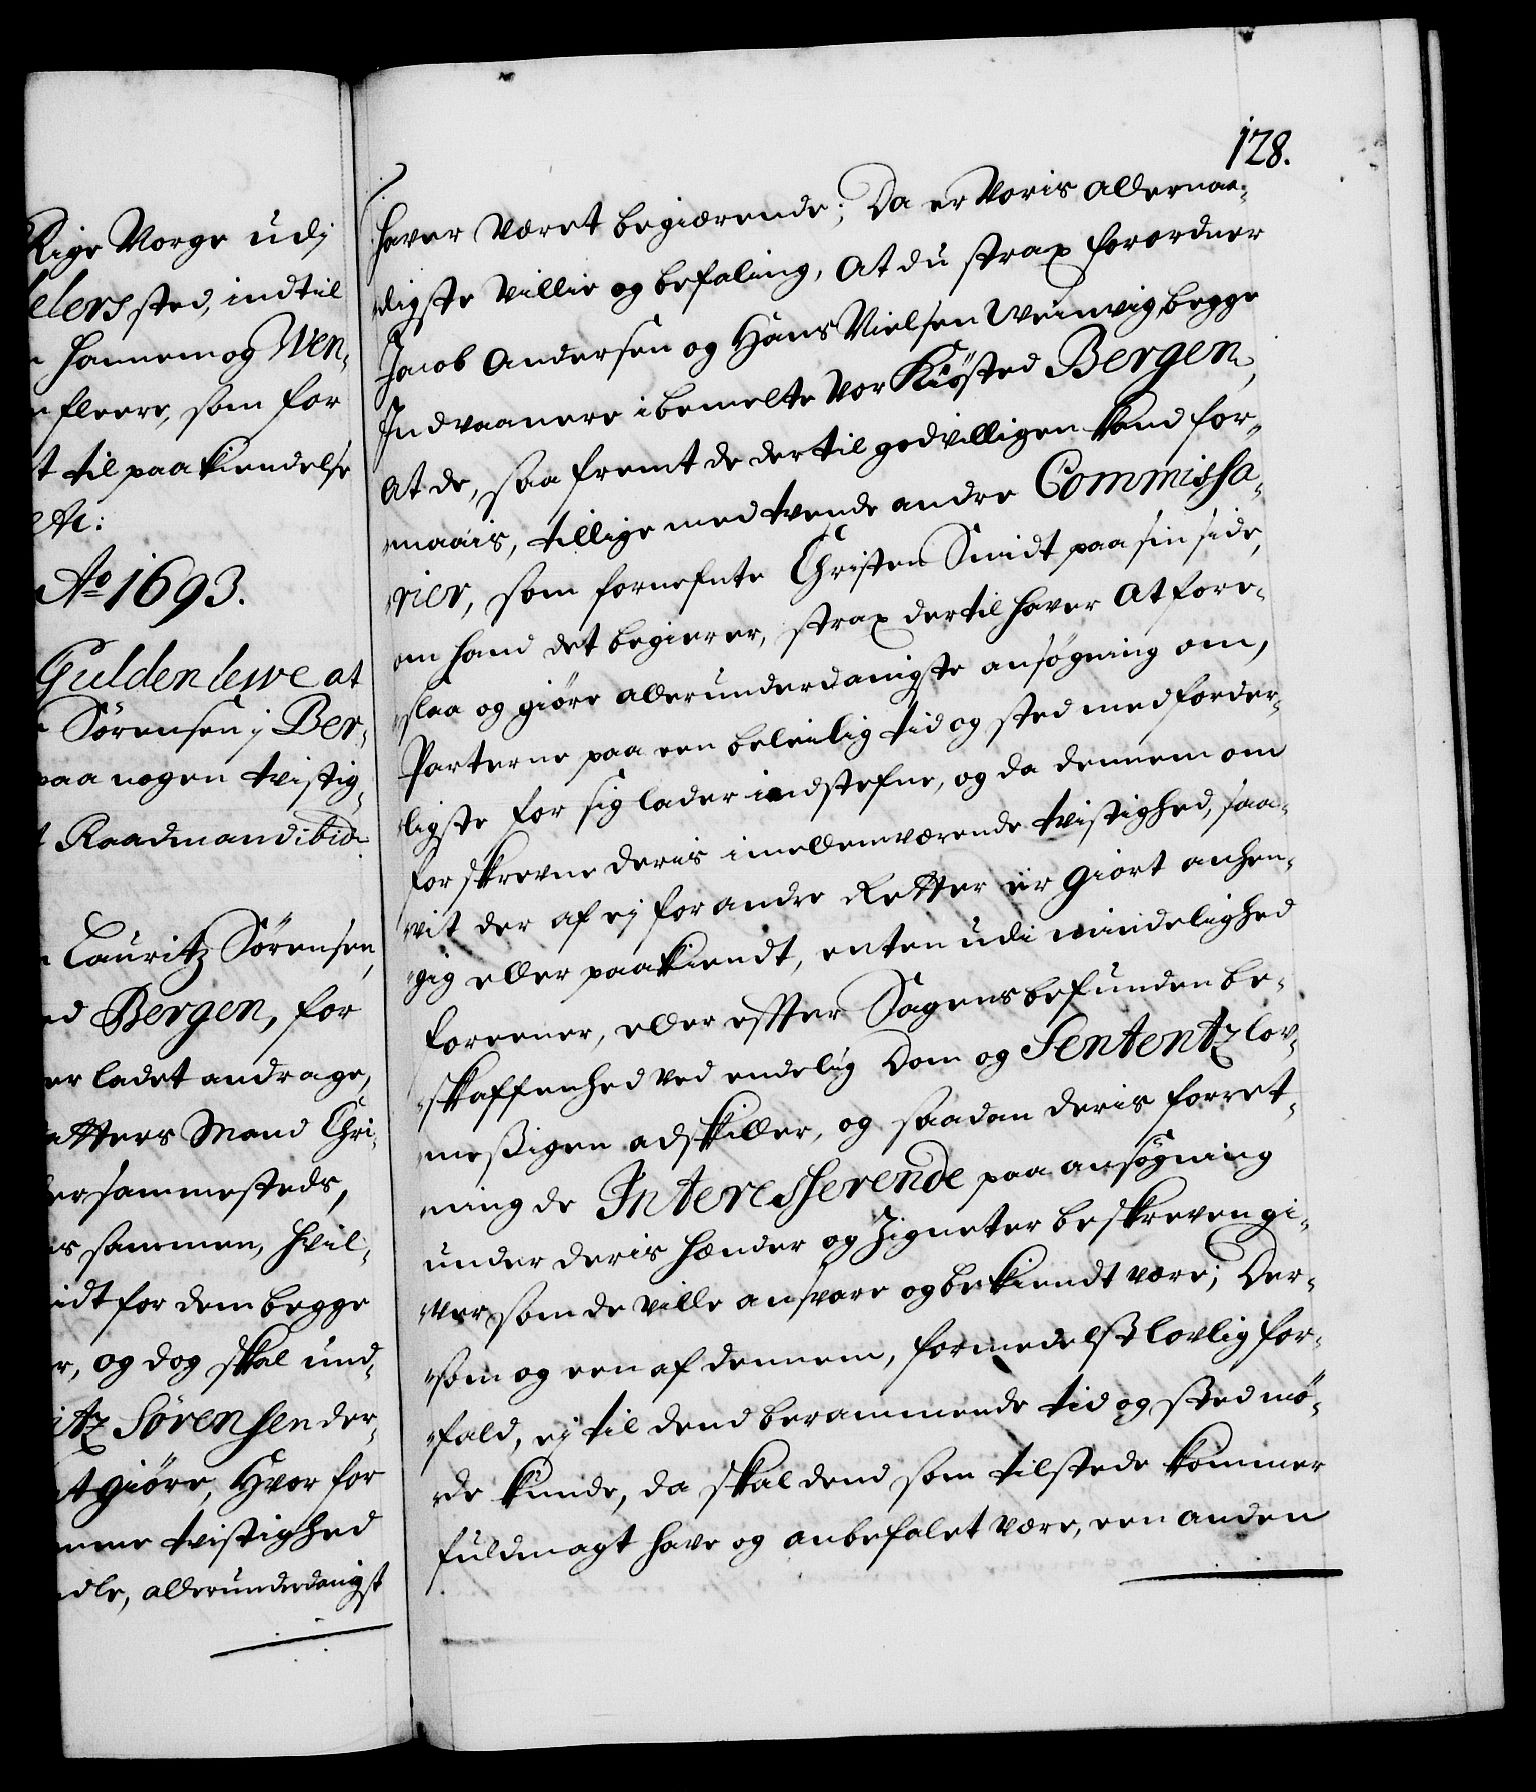 Rige Norge udj
elers sted, indtil
hannem og Wen-
fleere, som for
t til paakiendelse
etc:
Ao 1693.
Guldenlewe at
Sørensen j Ber-
paa nogen tvistig-
Raadmand ibid.
Lauritz Sørensen,
ed Bergen, for
er ladet andrage,
atters Mand Chri-
er sammesteds,
es sammen, hvil-
idt for dem begge
r, og dog skal und-
itz Sørensen der-
t giøre, Hvor for
mme tvistighed
dle, allerunderdanigst
128.
haver været begiærende; Da er Voris allernaa-
digste villie og befaling, At du strax forordner
Jacob Andersen og Hans Nielsen Weinwig, begge
Indvaanere i bemelte Vor Kiøsted Bergen,
At de, saa fremt de dertil godvilligen kand for-
maais, tillige med tvende andre Commissa-
rier, som fornefnte Christen Smidt paa sin side,
om hand det begierer, strax dertil haver At fore-
slaa og giøre allerunderdanigste ansøgning om,
Parterne paa een beleilig tid og sted med forder-
ligste for sig lader indstefne, og da dennem om
forskrevne deris imellemværende tvistighed, saa-
vit der af ej for andre Retter er giort anhen-
gig eller paakiendt, enten udi mindelighed
foreener, eller effter Sagens befunden be-
skaffenhed ved endelig Dom og Sententz lov-
meßigen adskiller, og saadan deris forret-
ning de Interesserende paa ansøgning
under deris hænder og Zigneter beskreven gi-
ver, som de ville ansvare og bekiendt være; Der-
som og een af dennem, formedelst lovlig for-
fald, ej til dend berammende tid og sted mø-
de kunde, da skal dend som tilstede kommer
fuldmagt have og anbefalet være, een anden